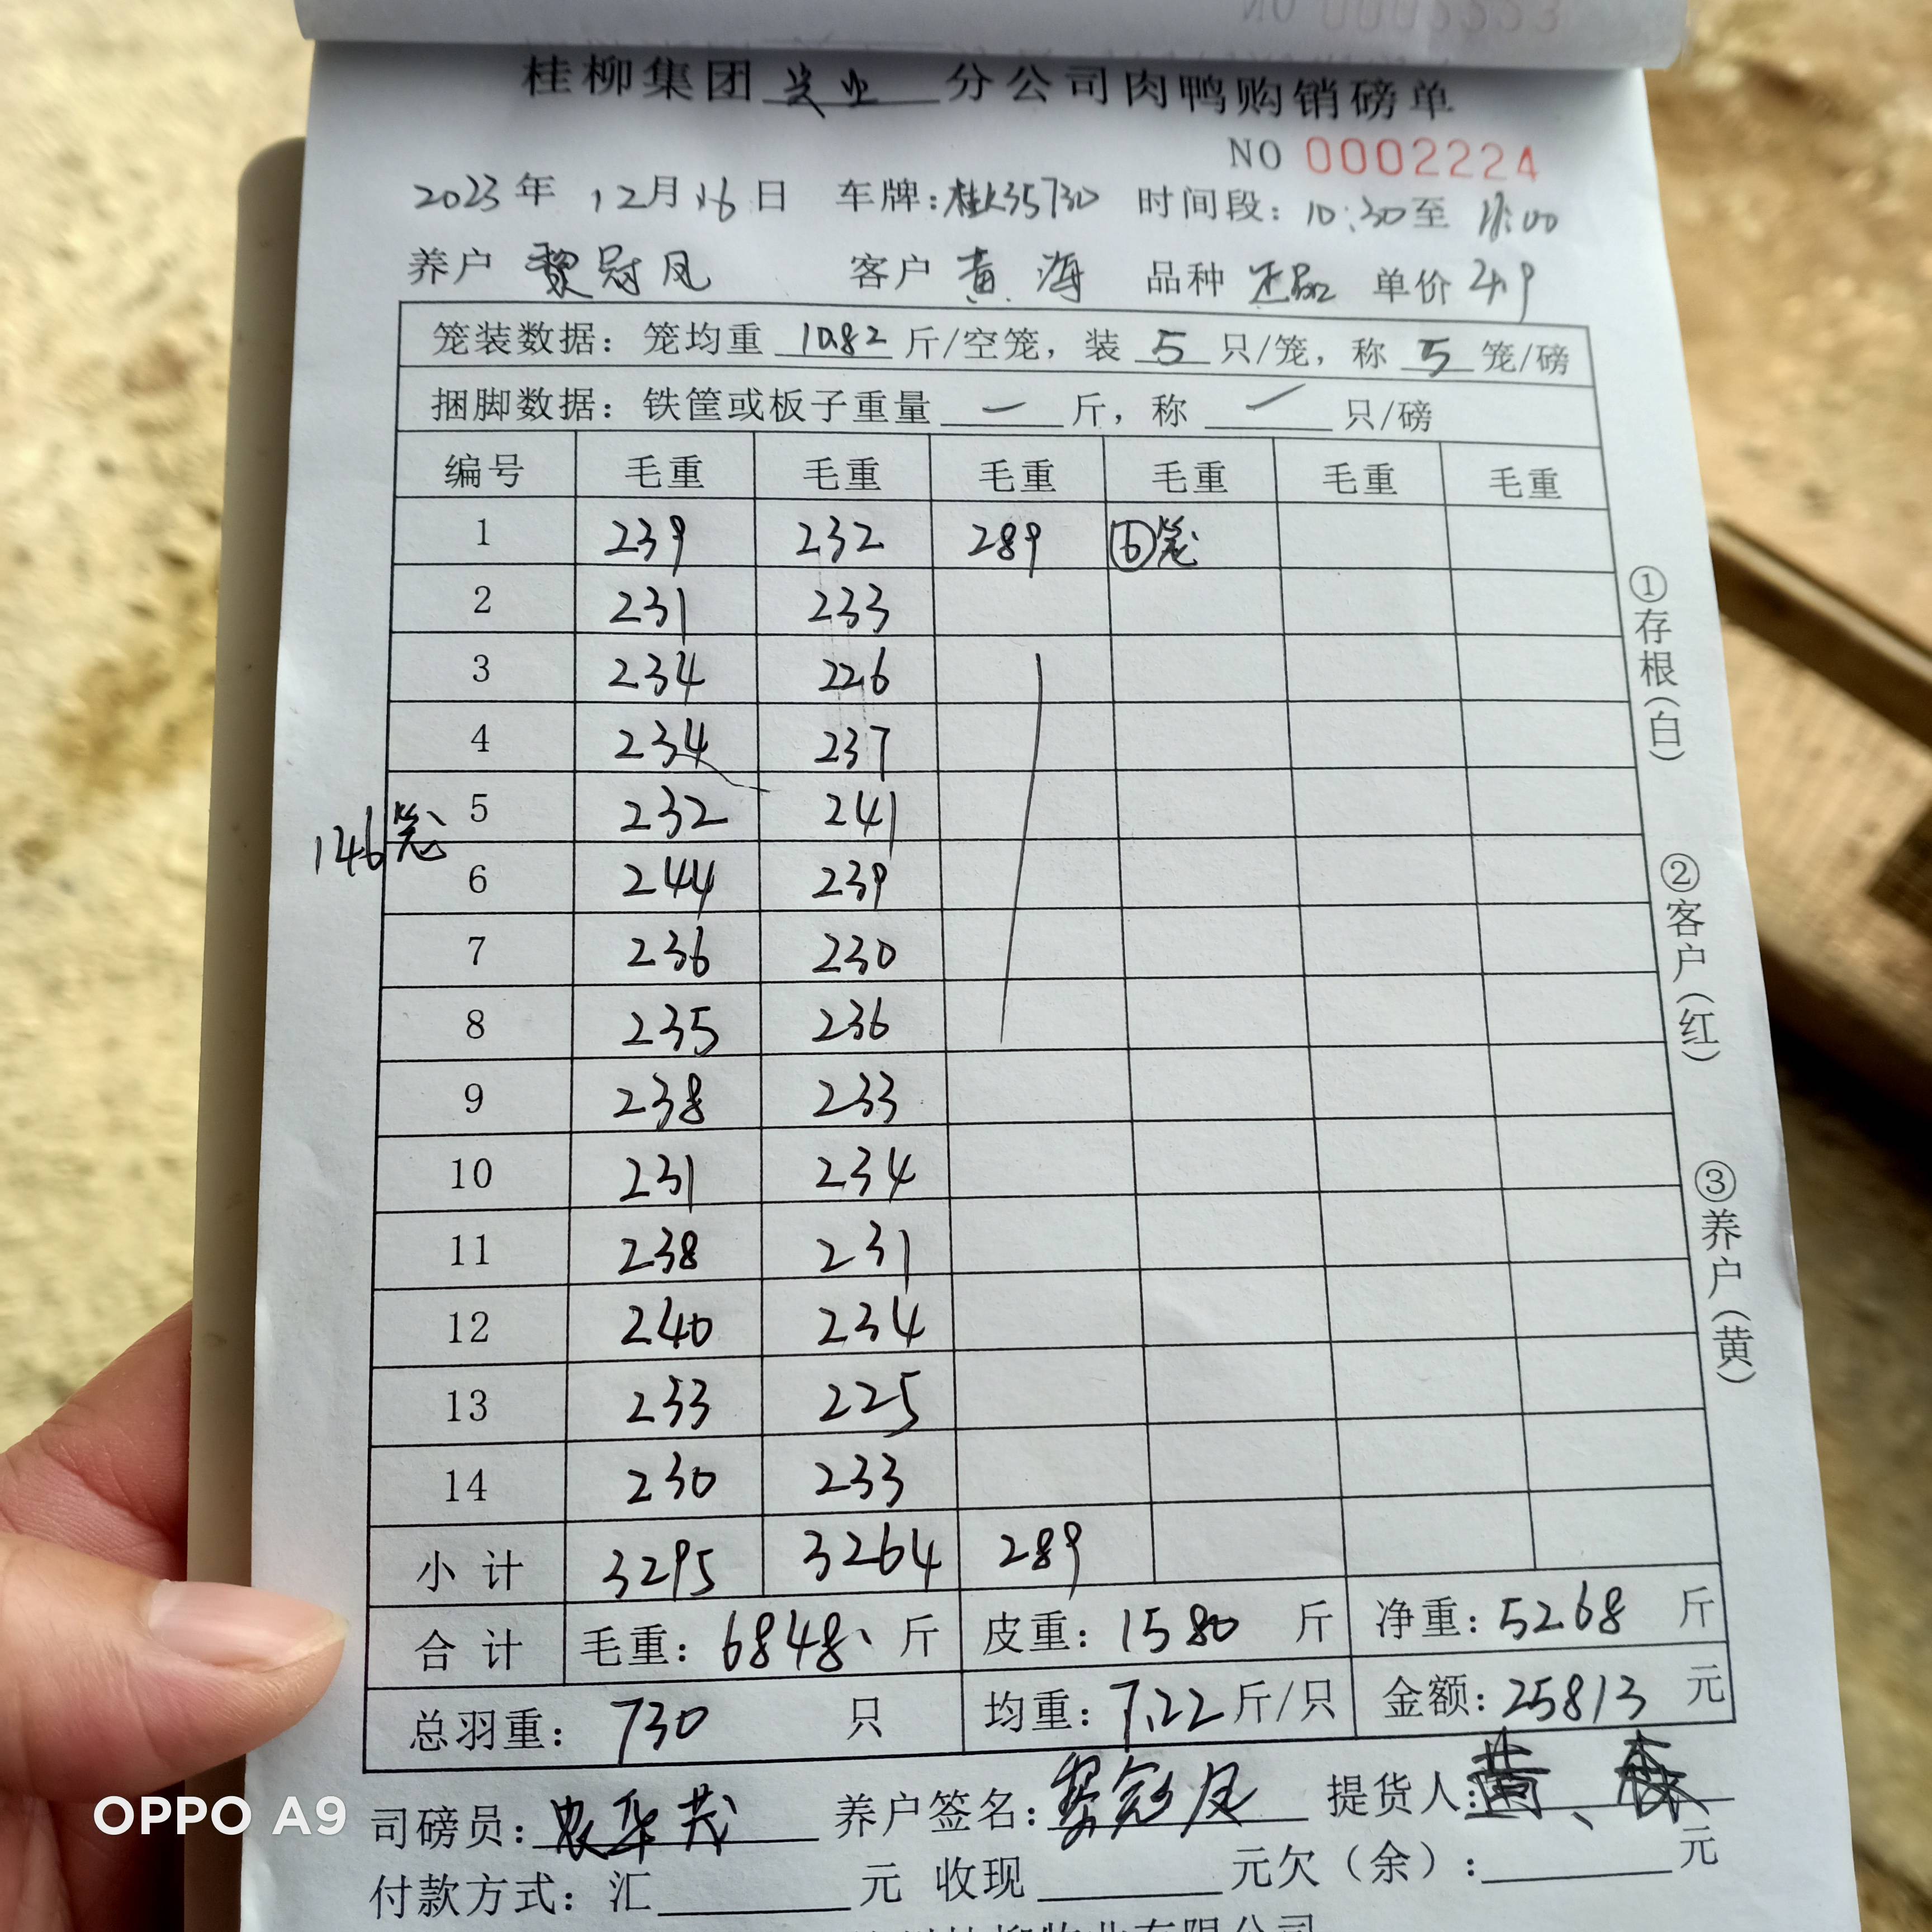 NO 0003353
桂柳集团 兴业 分公司肉鸭购销磅单
NO 0002224
2023年 12月16日 车牌:桂K35730 时间段:10:30至 11:00
养户 黎冠凤 客户 黄海 品种 单价 4.9
笼装数据:笼均重 10.82 斤/空笼,装 5 只/笼,称 5 笼/磅
捆脚数据:铁筐或板子重量 — 斤,称 / 只/磅
编号 毛重 毛重 毛重 毛重 毛重 毛重
1 239 232 289 ⑥笼
2 231 233
3 234 226
4 234 237
5 232 241
146笼
6 244 239
7 236 230
8 235 236
9 238 233
10 231 234
11 238 231
12 240 234
13 233 225
14 230 233
小计 3295 3264 289
合计 毛重:6848 斤 皮重:1580 斤 净重:5268 斤
总羽重:730 只 均重:7.22斤/只 金额:25813 元
①存根(白)
②客户(红)
③养户(黄)
司磅员: 养户签名:黎冠凤 提货人:
付款方式:汇 元 收现 元欠(余): 元
OPPO A9